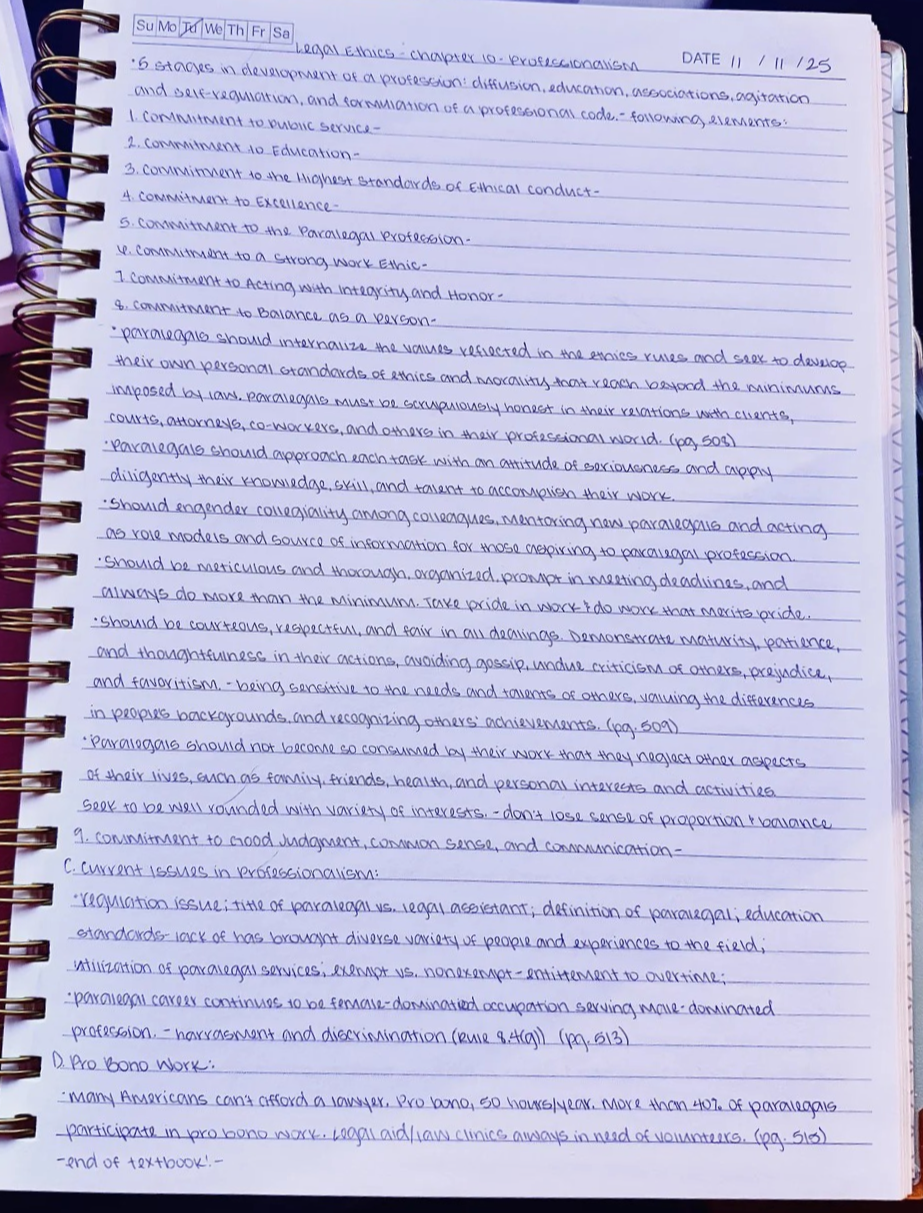 Su Mo Tu We Th Fr Sa
Legal Ethics - Chapter 10 - Professionalism DATE 11 / 11 / 25
•5 stages in development of a profession: diffusion, education, associations, agitation
and self-regulation, and formulation of a professional code. - following elements:
1. Commitment to Public Service-
2. Commitment to Education-
3. Commitment to the Highest Standards of Ethical Conduct-
4. Commitment to Excellence-
5. Commitment to the Paralegal Profession-
6. Commitment to a Strong Work Ethic-
7. Commitment to Acting with Integrity and Honor-
8. Commitment to Balance as a Person-
•paralegals should internalize the values reflected in the ethics rules and seek to develop
their own personal standards of ethics and morality that reach beyond the minimums
imposed by law. Paralegals must be scrupulously honest in their relations with clients,
courts, attorneys, co-workers, and others in their professional world. (pg. 508)
•Paralegals should approach each task with an attitude of seriousness and apply
diligently their knowledge, skill, and talent to accomplish their work.
•Should engender collegiality among colleagues, mentoring new paralegals and acting
as role models and source of information for those aspiring to paralegal profession.
•Should be meticulous and thorough, organized, prompt in meeting deadlines, and
always do more than the minimum. Take pride in work & do work that merits pride.
•Should be courteous, respectful, and fair in all dealings. Demonstrate maturity, patience,
and thoughtfulness in their actions, avoiding gossip, undue criticism of others, prejudice,
and favoritism. - being sensitive to the needs and talents of others, valuing the differences
in people's backgrounds, and recognizing others' achievements. (pg. 509)
•Paralegals should not become so consumed by their work that they neglect other aspects
of their lives, such as family, friends, health, and personal interests and activities
Seek to be well rounded with variety of interests. - don't lose sense of proportion & balance
9. Commitment to Good Judgment, Common Sense, and Communication-
C. Current Issues in Professionalism:
•regulation issue; title of paralegal vs. legal assistant; definition of paralegal; education
standards- lack of has brought diverse variety of people and experiences to the field;
utilization of paralegal services; exempt vs. nonexempt- entitlement to overtime;
•paralegal career continues to be female-dominated occupation serving male-dominated
profession. - harrasment and discrimination (Rule 8.4(g)) (pg. 513)
D. Pro Bono Work:
•Many Americans can't afford a lawyer. Pro bono, 50 hours/year. More than 40% of paralegals
participate in pro bono work. Legal aid/law clinics always in need of volunteers. (pg.
-end of textbook!-